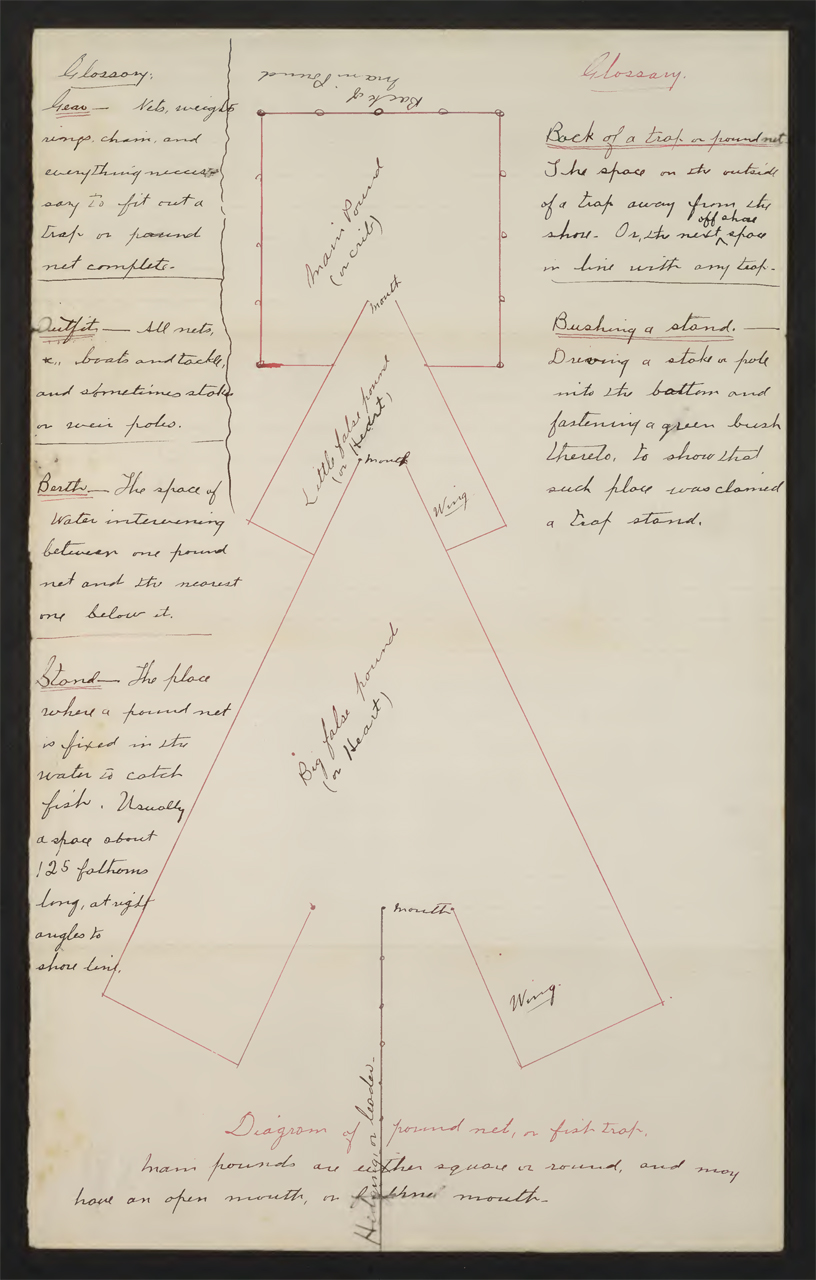 Glossary.
Gear — Nets, weights
rings, chain, and
everything neces-
sary to fit out a
trap or pound
net complete.
Outfit — All nets,
&c., boats and tackle,
and sometimes stakes
or weir poles.
Berth — The space of
Water intervening
between one pound
net and the nearest
one below it.
Stand — The place
where a pound net
is fixed in the
water to catch
fish. Usually
a space about
125 fathoms
long, at right
angles to
shore line.
Back of
main Pound
Main Pound
(or crib)
mouth
Little false pound
(or Heart)
mouth
Wing
Big false pound
(or Heart)
mouth
Wing
Hedging or leader.
Glossary.
Back of a trap or pound net.
The space on the outside
of a trap away from the
shore. Or, the next off shore space
in line with any trap.
Bushing a stand. —
Driving a stake or pole
into the bottom and
fastening a green bush
thereto, to show that
such place was claimed
a trap stand.
Diagram of pound net, or fish trap.
Main pounds are either square or round, and may
have an open mouth, or mouth.